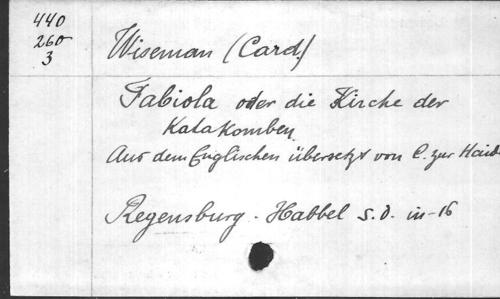 440
260
3
Wiseman (Card.)
Fabiola oder die Kirche der
Katakomben
Aus dem Englischen übersetzt von C. zur Haid
Regensburg. Habbel s. d. in-16